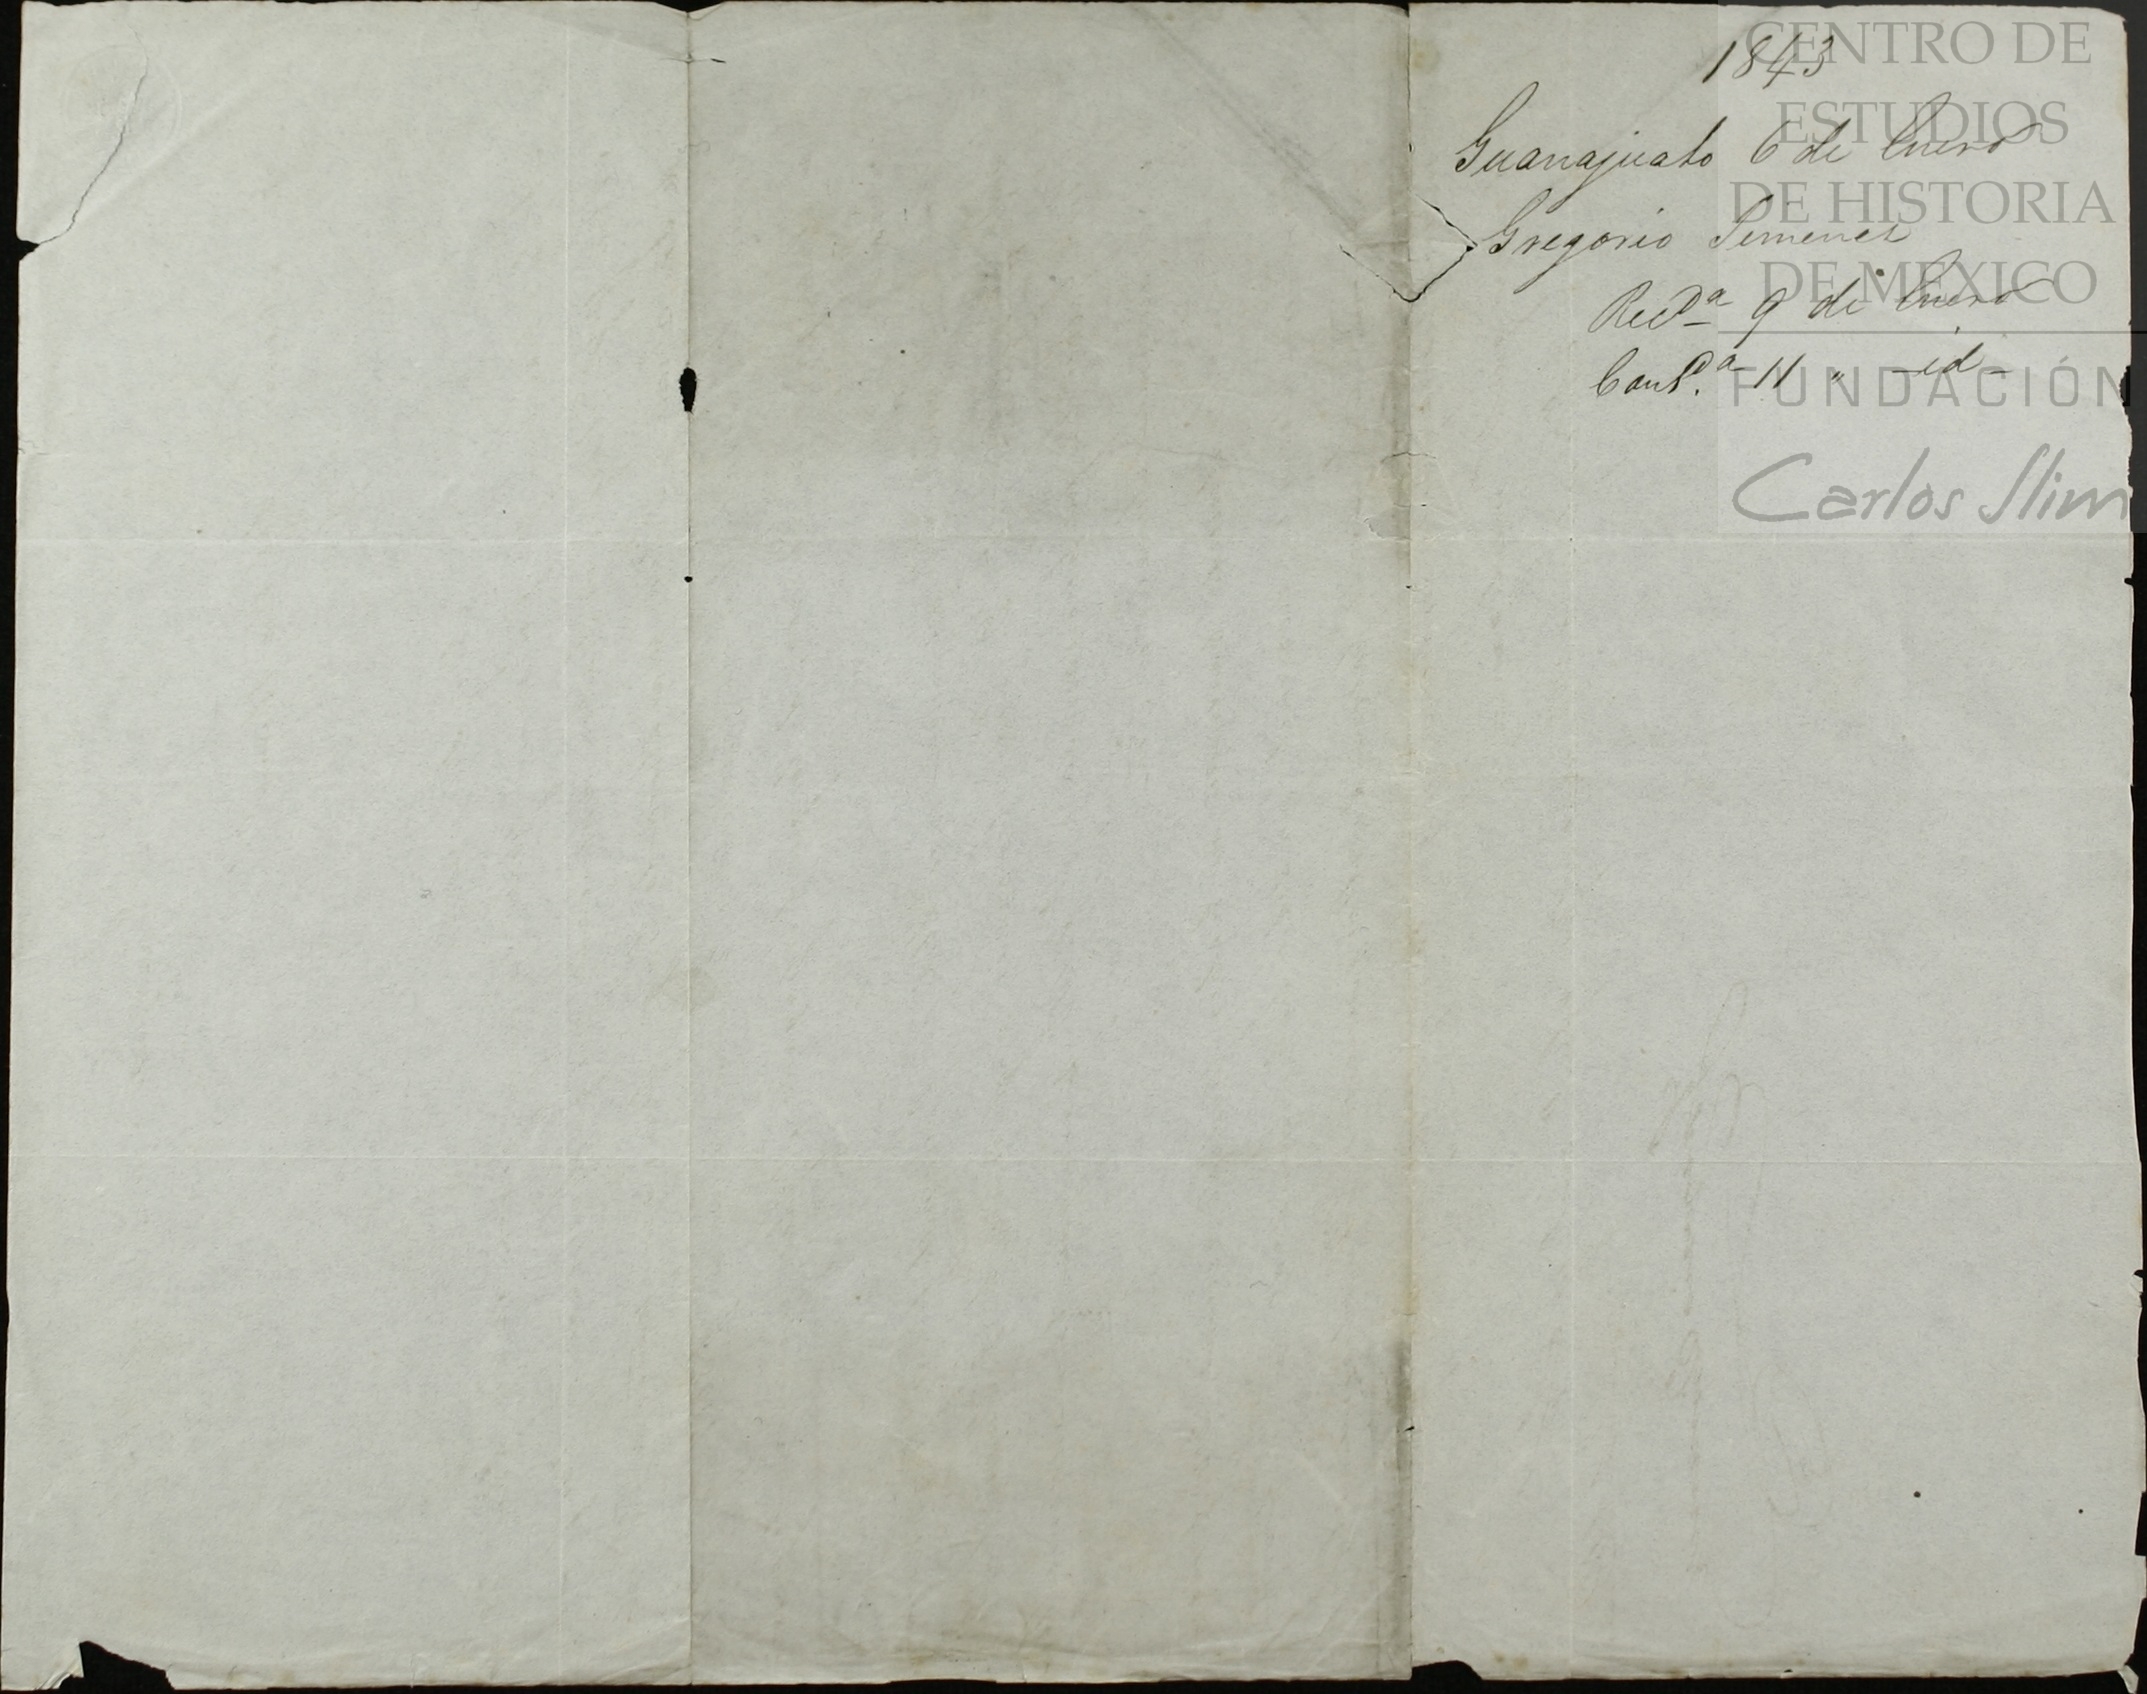 1843
Guanajuato 6 de Enero
Gregorio Jimenez
Recda 9 de Enero
Contda 11 " -id-
CENTRO DE
ESTUDIOS
DE HISTORIA
DE MÉXICO
FUNDACIÓN
Carlos Slim